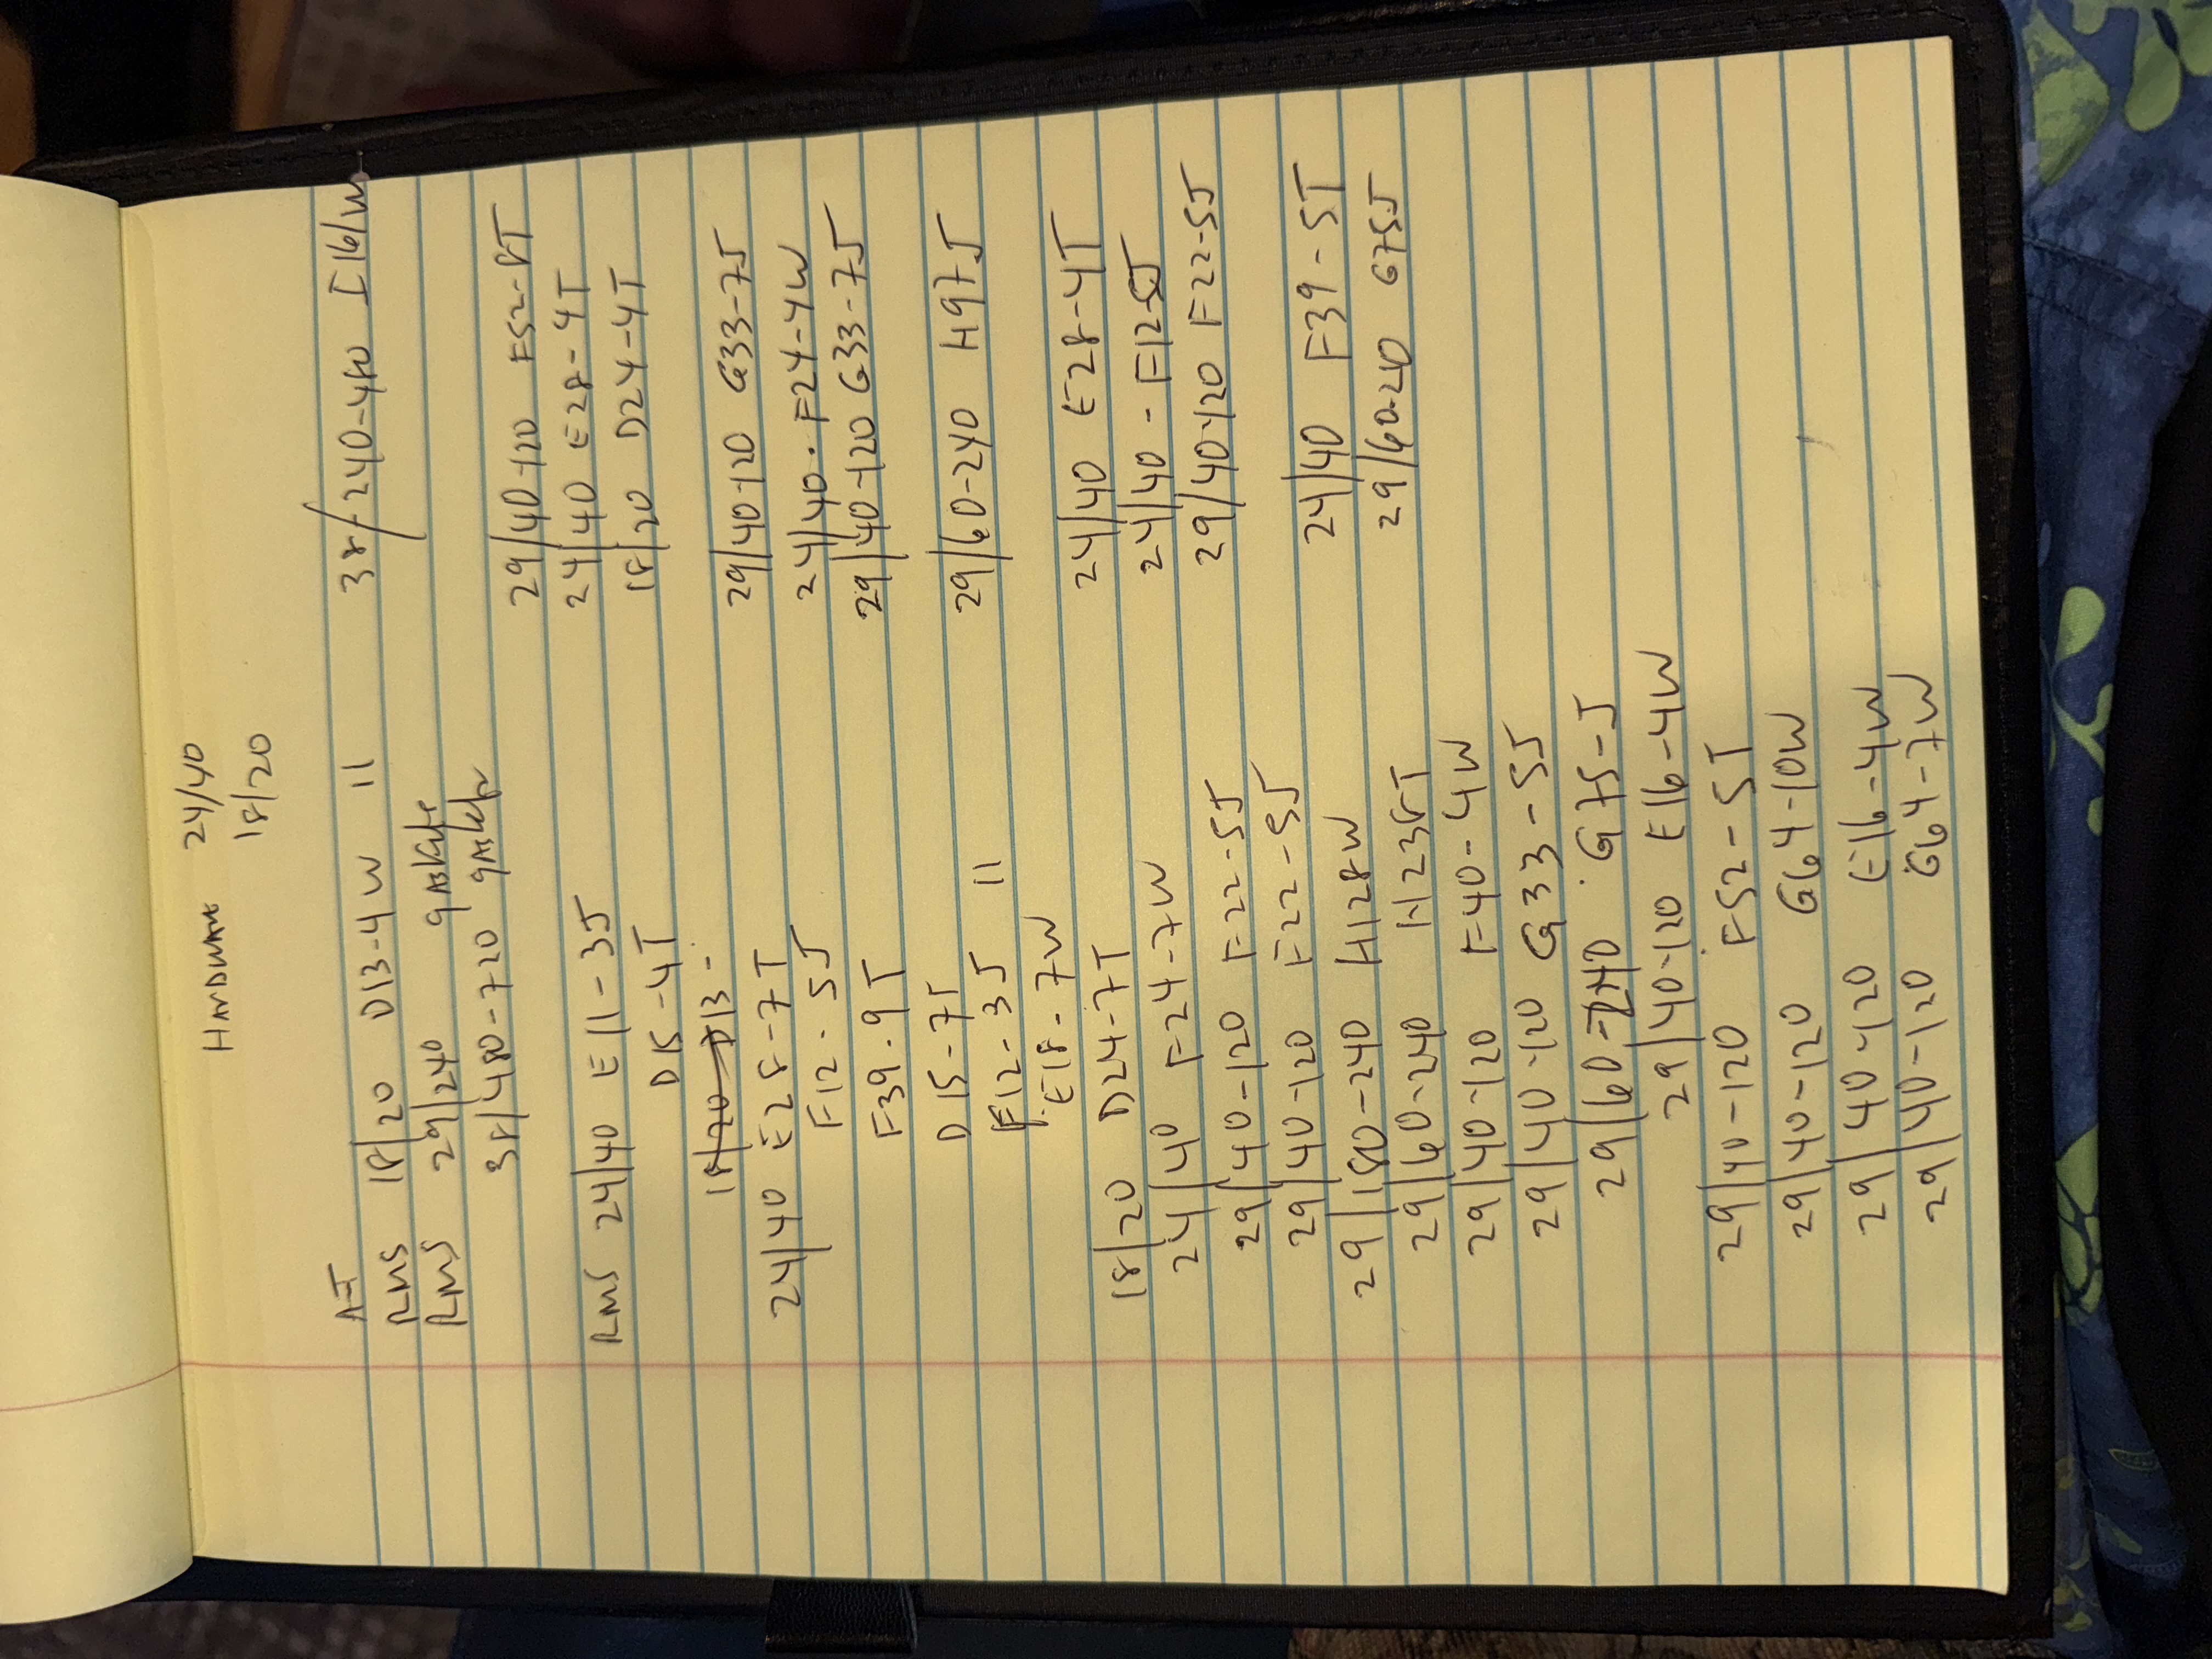 HARDWARE 24/40
18/20
AT
RMS 18/20 D13-4W 11
RMS 29/240 9
38/480-720 9
RMS 24/40 E11-3J
D15-4T
18/20 D13-
24/40 E28-7T
F12-5J
F39-9T
D15-7T
F12-3J 11
E18-7W
18/20 D24-7T
24/40 F24-7W
29/40-120 F22-5J
29/40-120 F22-5J
29/180-240 H128W
29/60-240 H123
29/40-120 F40-4W
29/40-120 G33-5J
29/60-240 G75-J
29/40-120 E16-4W
29/40-120 F52-5T
29/40-120 G64-10W
29/40-120 E16-4W
29/40-120 G64-7W
38/240-480 I161W
29/40-120 F52-8T
24/40 E28-4T
18/20 D24-4T
29/40-120 G33-7J
24/40-F24-4W
29/40-120 G33-7J
29/60-240 H97J
24/40 E28-4T
24/40-F12-5J
29/40-120 F22-5J
24/40 F39-5T
29/60-240 G75J